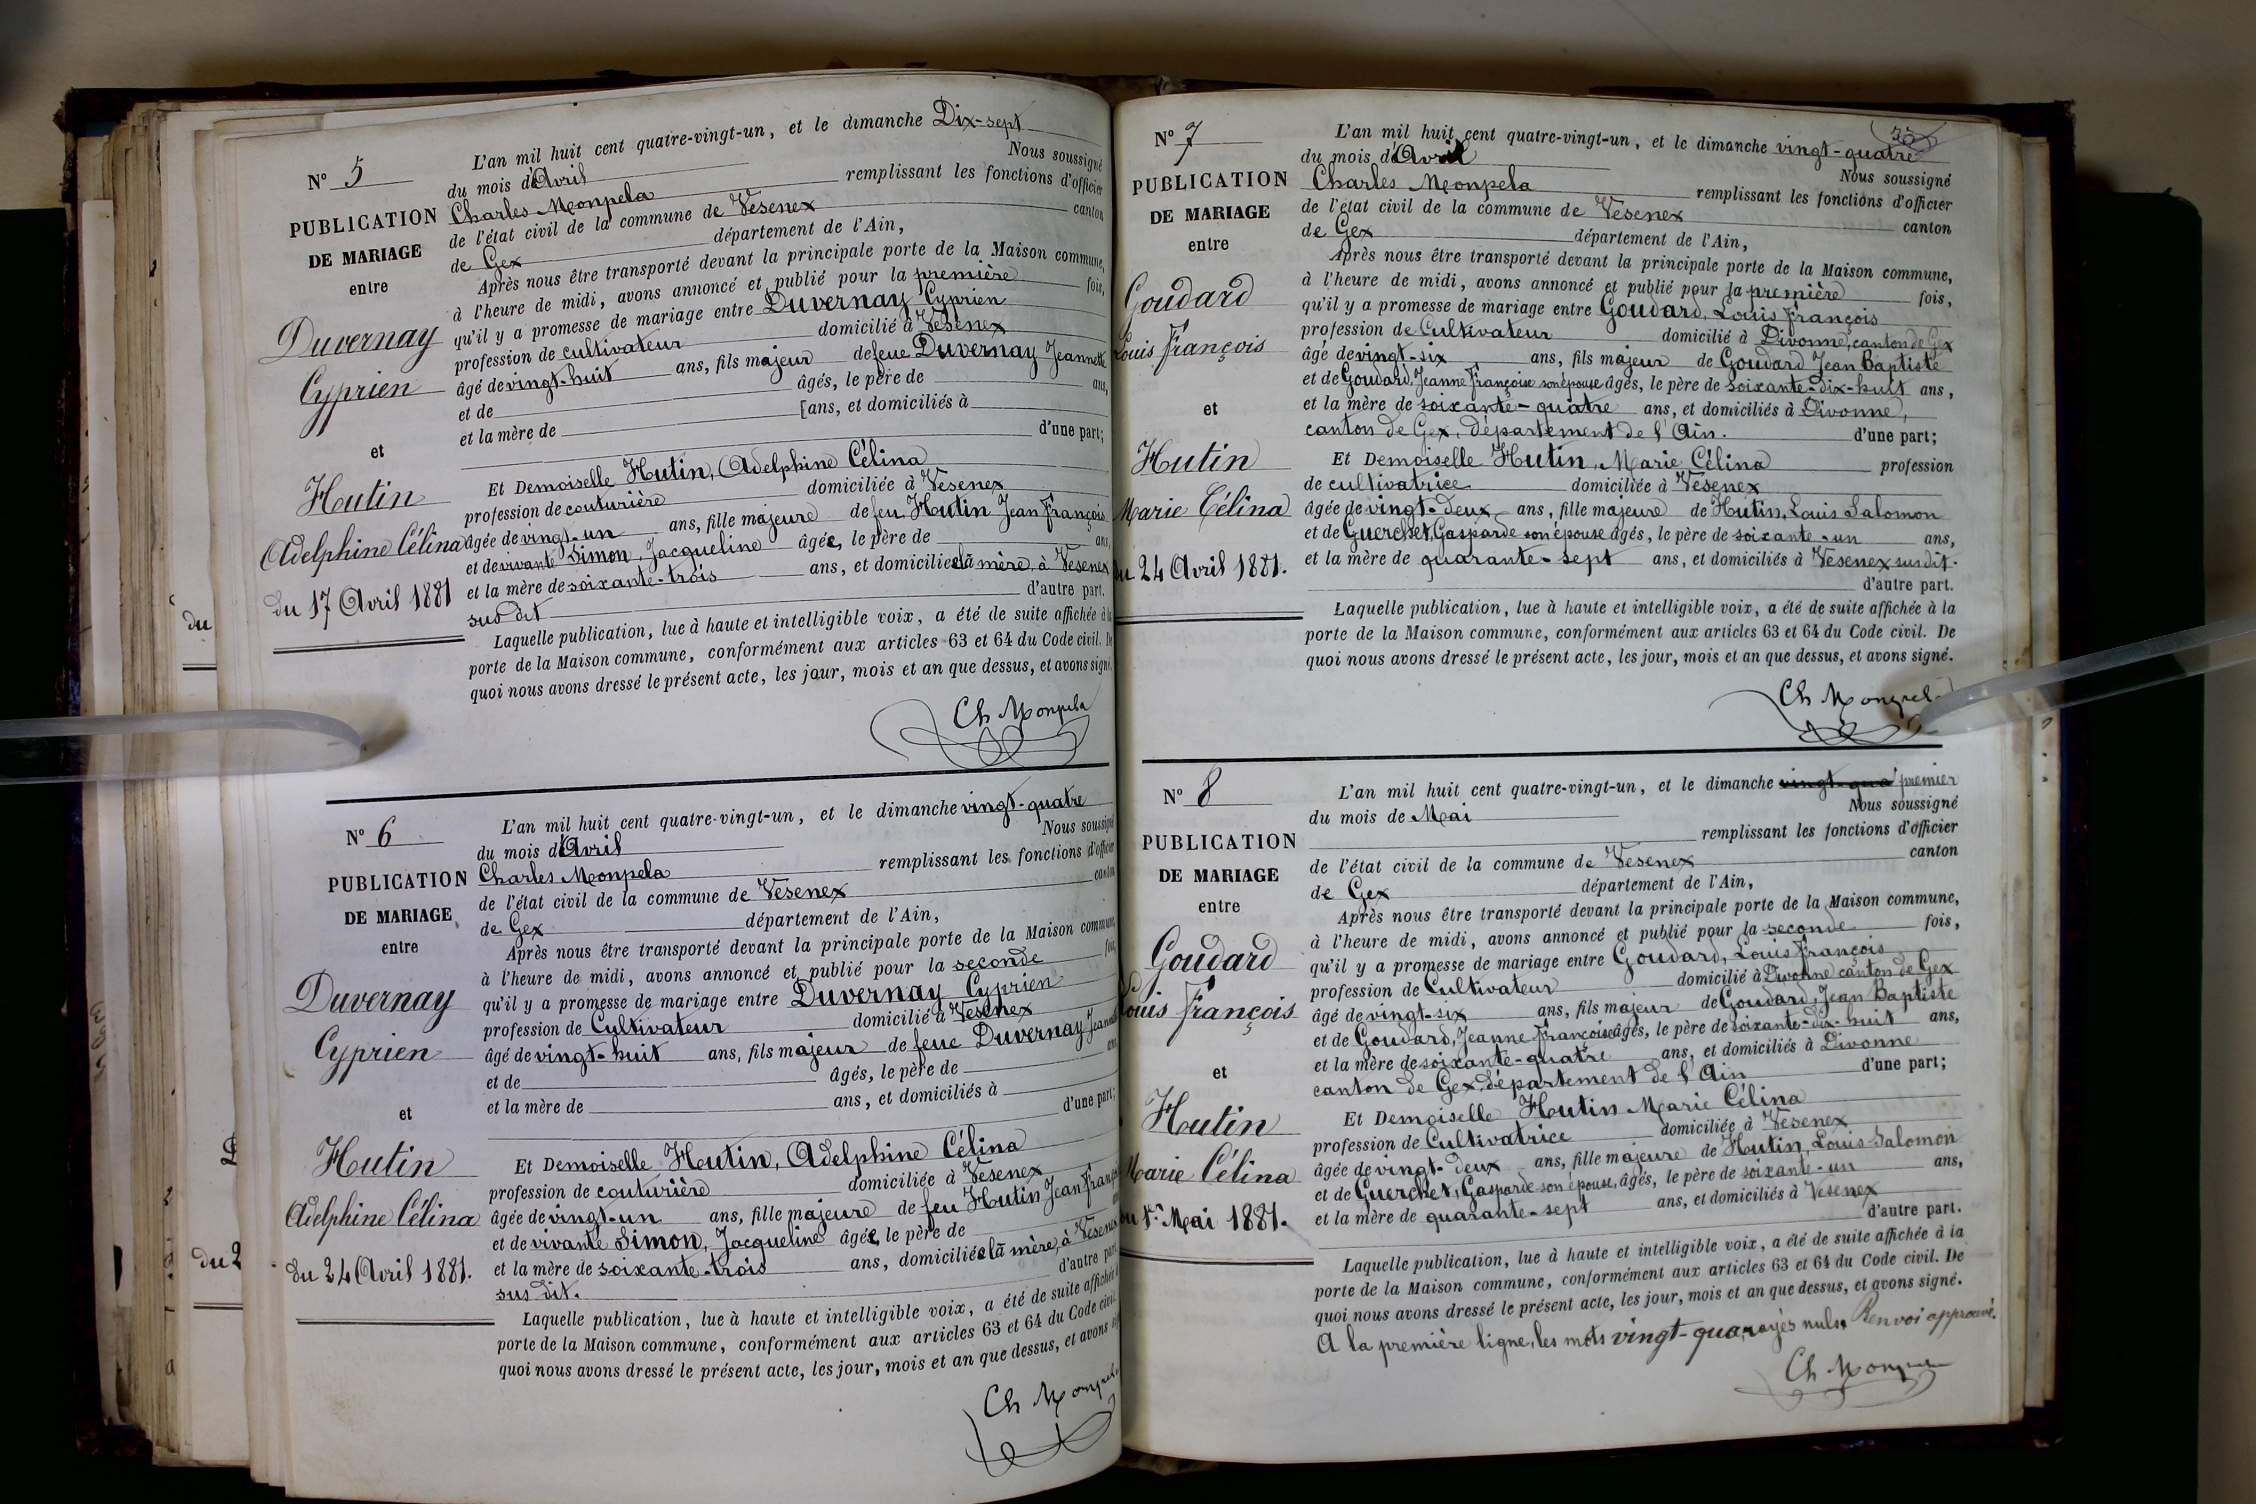 N° 5
PUBLICATION
DE MARIAGE
entre
Duvernay
Cyprien
et
Hutin
Adelphine Célina
du 17 Avril 1881
L'an mil huit cent quatre-vingt-un, et le dimanche Dix-sept
du mois d'Avril Nous soussigné
Charles Monpela remplissant les fonctions d'officier
de l'état civil de la commune de Vesenex canton
de Gex département de l'Ain,
Après nous être transporté devant la principale porte de la Maison commune,
à l'heure de midi, avons annoncé et publié pour la première fois,
qu'il y a promesse de mariage entre Duvernay Cyprien
profession de cultivateur domicilié à Vesenex
âgé de vingt-huit ans, fils majeur de feue Duvernay Jeannette
et de âgés, le père de ans,
et la mère de [ans, et domiciliés à
d'une part;
Et Demoiselle Hutin, Adelphine Célina
profession de couturière domiciliée à Vesenex
âgée de vingt-un ans, fille majeure de feu Hutin Jean François
et de vivante Simon, Jacqueline âgée, le père de ans,
et la mère de soixante-trois ans, et domiciliée la mère, à Vesenex
sus dit d'autre part.
Laquelle publication, lue à haute et intelligible voix, a été de suite affichée à la
porte de la Maison commune, conformément aux articles 63 et 64 du Code civil. De
quoi nous avons dressé le présent acte, les jour, mois et an que dessus, et avons signé.
Ch Monpela
N° 6
PUBLICATION
DE MARIAGE
entre
Duvernay
Cyprien
et
Hutin
Adelphine Célina
du 24 Avril 1881.
L'an mil huit cent quatre-vingt-un, et le dimanche vingt-quatre
du mois d'Avril Nous soussigné
Charles Monpela remplissant les fonctions d'officier
de l'état civil de la commune de Vesenex canton
de Gex département de l'Ain,
Après nous être transporté devant la principale porte de la Maison commune,
à l'heure de midi, avons annoncé et publié pour la seconde fois,
qu'il y a promesse de mariage entre Duvernay Cyprien
profession de Cultivateur domicilié à Vesenex
âgé de vingt-huit ans, fils majeur de feue Duvernay Jeannette
et de âgés, le père de ans,
et la mère de ans, et domiciliés à
d'une part;
Et Demoiselle Hutin, Adelphine Célina
profession de couturière domiciliée à Vesenex
âgée de vingt-un ans, fille majeure de feu Hutin Jean François
et de vivante Simon, Jacqueline âgée, le père de
et la mère de soixante-trois ans, domiciliée la mère, à Vesenex
sus dit. d'autre part.
Laquelle publication, lue à haute et intelligible voix, a été de suite affichée
porte de la Maison commune, conformément aux articles 63 et 64 du Code civil.
quoi nous avons dressé le présent acte, les jour, mois et an que dessus, et avons
Ch Monpela
N° 7
PUBLICATION
DE MARIAGE
entre
Goudard
Louis François
et
Hutin
Marie Célina
du 24 Avril 1881.
L'an mil huit cent quatre-vingt-un, et le dimanche vingt-quatre
du mois d'Avril Nous soussigné
Charles Monpela remplissant les fonctions d'officier
de l'état civil de la commune de Vesenex canton
de Gex département de l'Ain,
Après nous être transporté devant la principale porte de la Maison commune,
à l'heure de midi, avons annoncé et publié pour la première fois,
qu'il y a promesse de mariage entre Goudard, Louis François
profession de Cultivateur domicilié à Divonne, canton de Gex
âgé de vingt-six ans, fils majeur de Goudard Jean Baptiste
et de Goudard, Jeanne Françoise son épouse âgés, le père de soixante-dix-huit ans,
et la mère de soixante-quatre ans, et domiciliés à Divonne,
canton de Gex, département de l'Ain. d'une part;
Et Demoiselle Hutin, Marie Célina profession
de cultivatrice domiciliée à Vesenex
âgée de vingt-deux ans, fille majeure de Hutin, Louis Salomon
et de Guerchet, Gasparde son épouse âgés, le père de soixante-un ans,
et la mère de quarante-sept ans, et domiciliés à Vesenex susdit.
d'autre part.
Laquelle publication, lue à haute et intelligible voix, a été de suite affichée à la
porte de la Maison commune, conformément aux articles 63 et 64 du Code civil. De
quoi nous avons dressé le présent acte, les jour, mois et an que dessus, et avons signé.
Ch Monpela
N° 8
PUBLICATION
DE MARIAGE
entre
Goudard
Louis François
et
Hutin
Marie Célina
du 1er Mai 1881.
L'an mil huit cent quatre-vingt-un, et le dimanche vingt-qua premier
du mois de Mai Nous soussigné
remplissant les fonctions d'officier
de l'état civil de la commune de Vesenex canton
de Gex département de l'Ain,
Après nous être transporté devant la principale porte de la Maison commune,
à l'heure de midi, avons annoncé et publié pour la seconde fois,
qu'il y a promesse de mariage entre Goudard, Louis François
profession de Cultivateur domicilié à Divonne canton de Gex
âgé de vingt-six ans, fils majeur de Goudard, Jean Baptiste
et de Goudard, Jeanne Françoise âgés, le père de soixante-dix-huit ans,
et la mère de soixante-quatre ans, et domiciliés à Divonne
canton de Gex, département de l'Ain d'une part;
Et Demoiselle Hutin Marie Célina
profession de Cultivatrice domiciliée à Vesenex
âgée de vingt-deux ans, fille majeure de Hutin, Louis Salomon
et de Guerchet, Gasparde son épouse, âgés, le père de soixante-un ans,
et la mère de quarante-sept ans, et domiciliés à Vesenex
d'autre part.
Laquelle publication, lue à haute et intelligible voix, a été de suite affichée à la
porte de la Maison commune, conformément aux articles 63 et 64 du Code civil. De
quoi nous avons dressé le présent acte, les jour, mois et an que dessus, et avons signé.
A la première ligne, les mots vingt-qua rayés nuls. Renvoi approuvé.
Ch Monpela